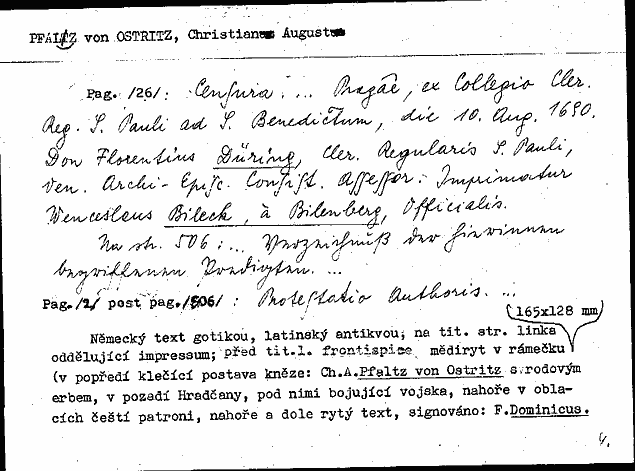 PFALTZ von OSTRITZ, Christian August
Pag. /26/: Censura: ... Pragae, ex Collegio Cler.
Reg. S. Pauli ad S. Benedictum, die 10. Aug. 1690.
Don Florentius Düring, Cler. Regularis S. Pauli,
Ven. Archi-Episc. Consist. Assessor: Imprimatur
Wenceslaus Bileck, à Bilenberg, Officialis.
Na str. 506: ... Verzeichnuß der hierinnen
begriffenen Predigten. ...
Pag./2/ post pag./506/: Protestatio Authoris. ...
(165x128 mm)
Německý text gotikou, latinský antikvou; na tit. str. linka
oddělující impressum; před tit.l. frontispice mědiryt v rámečku
(v popředí klečící postava kněze: Ch.A.Pfaltz von Ostritz s rodovým
erbem, v pozadí Hradčany, pod nimi bojující vojska, nahoře v obla-
cích čeští patroni, nahoře a dole rytý text, signováno: F.Dominicus.